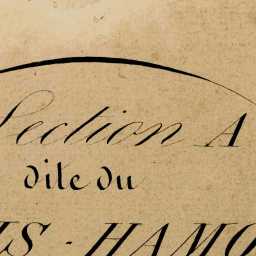 Section A
dite du
IS - HAMO